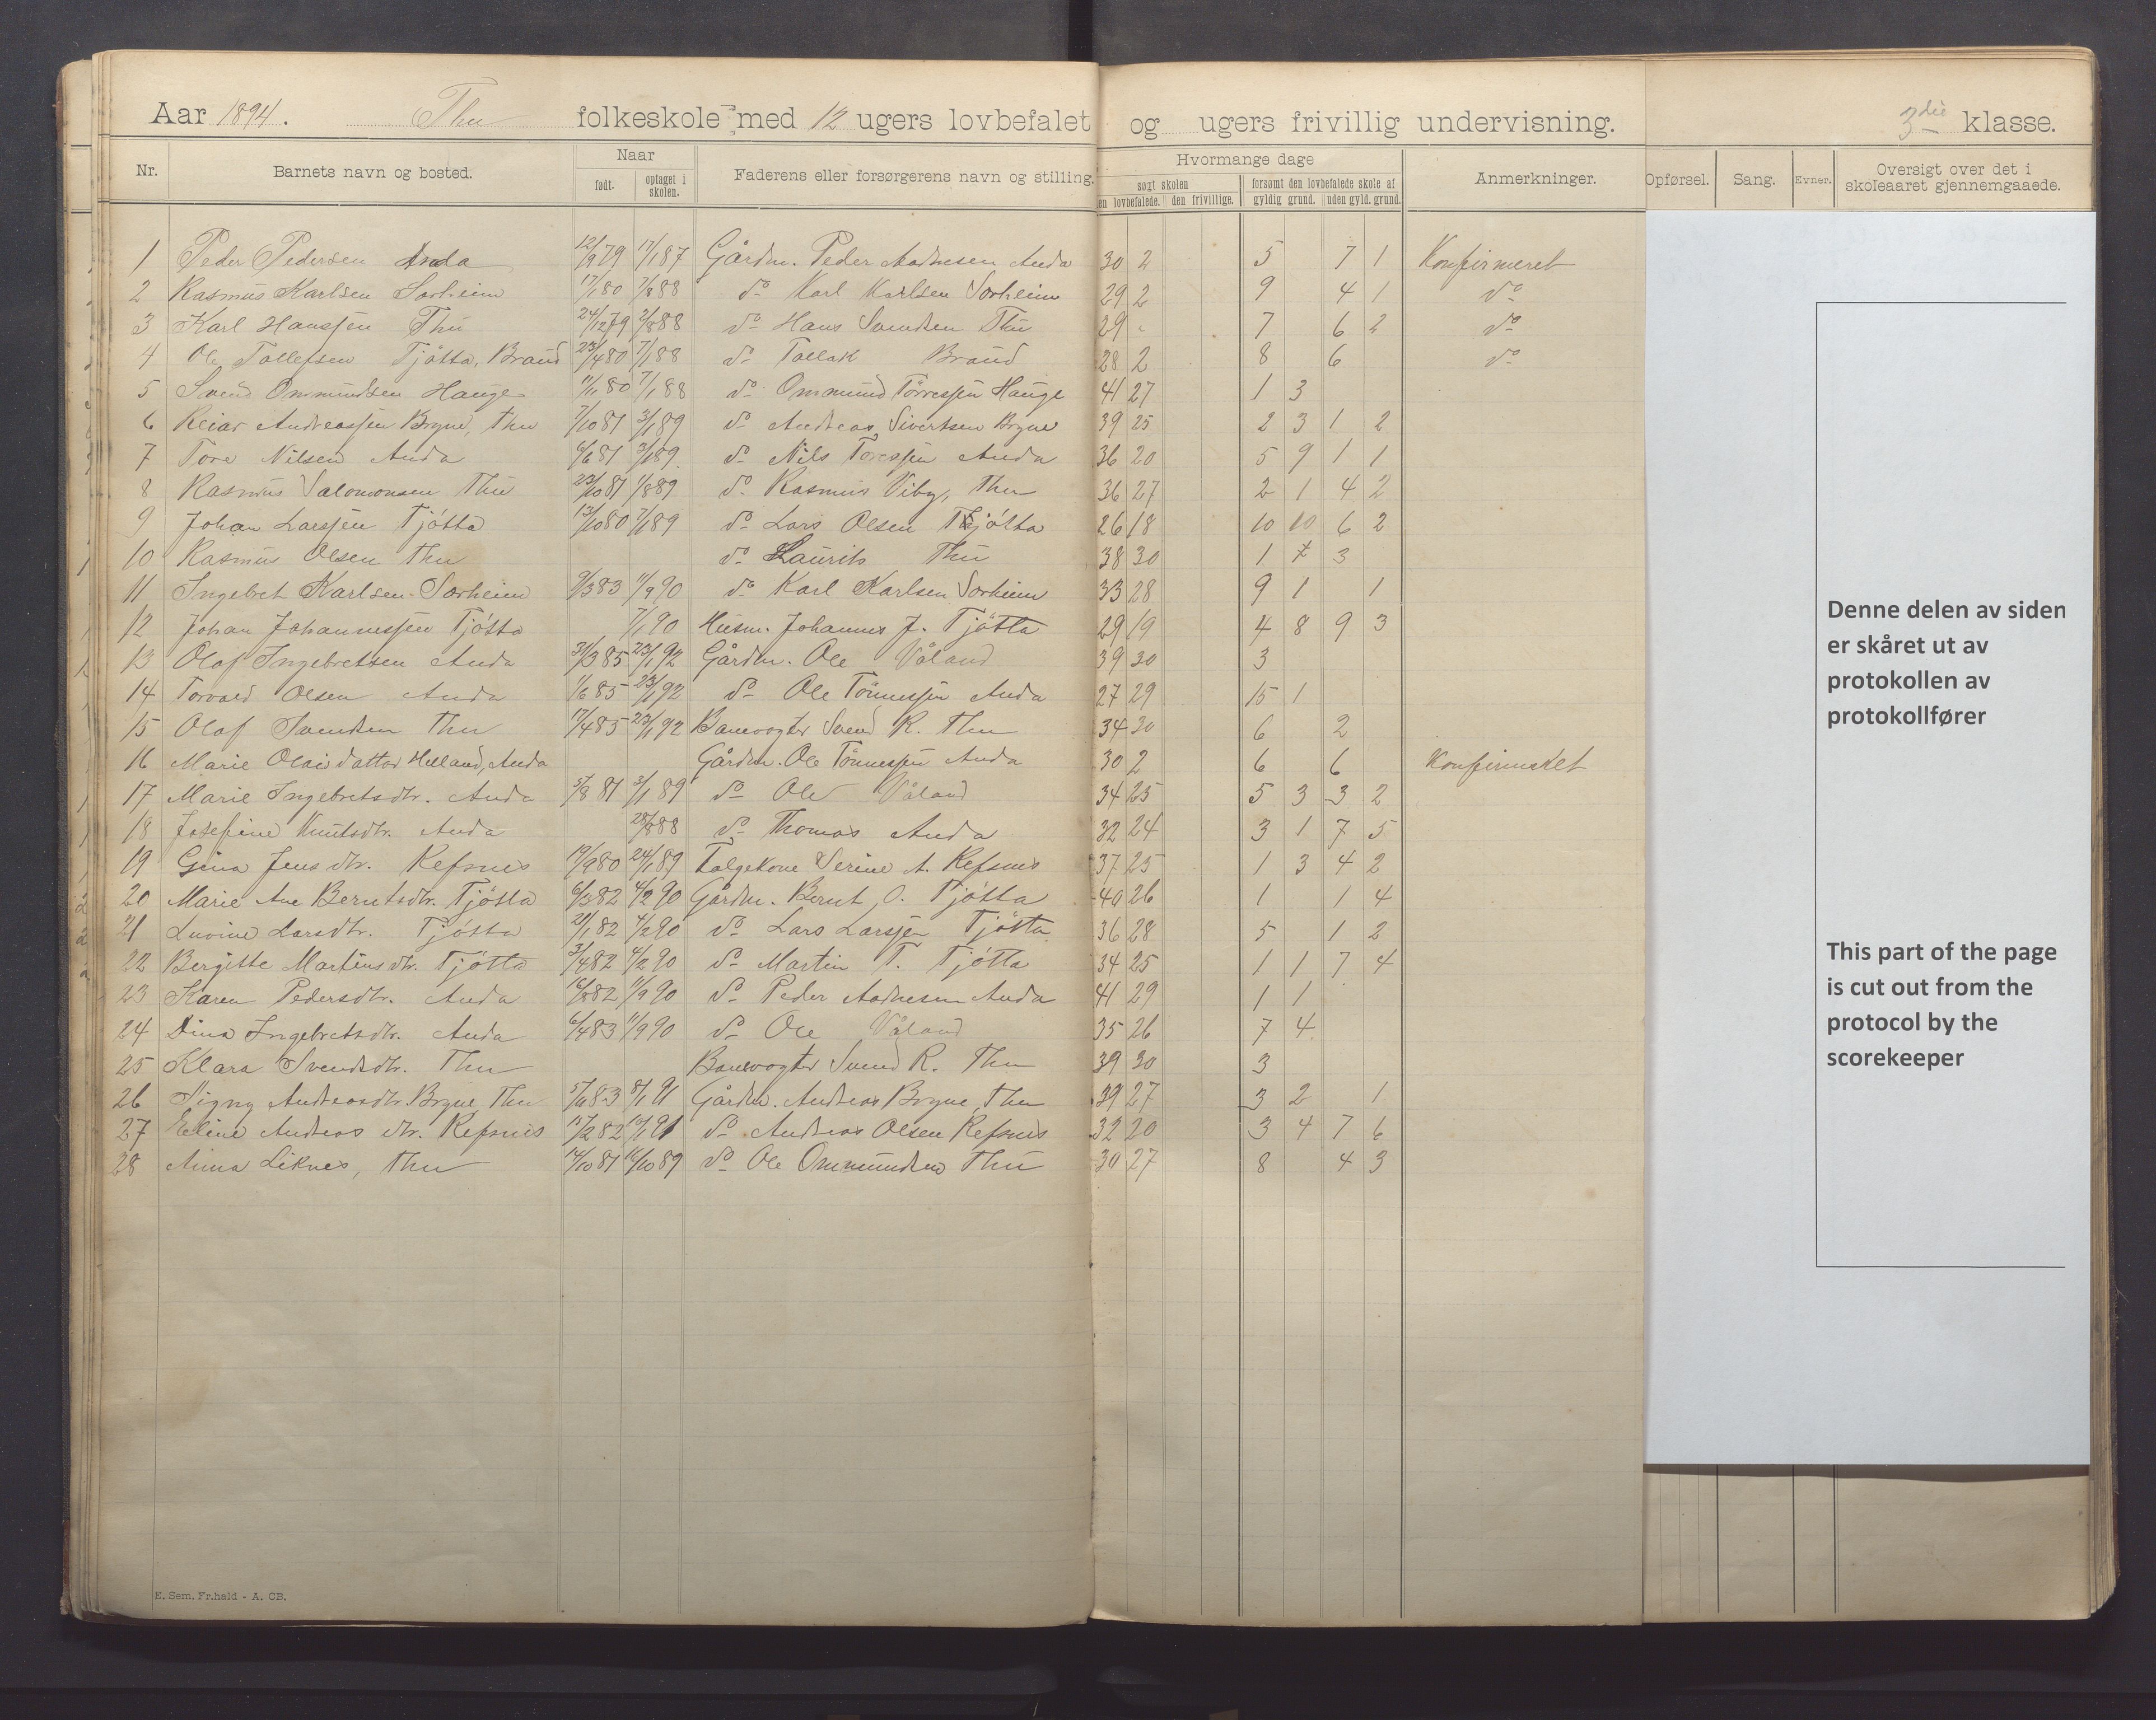 Aar 1894. Thu folkeskole med 12 ugers lovbefalet og ugers frivillig undervisning. 3die klasse.
Nr. Barnets navn og bosted. Naar født. optaget i skolen. Faderens eller forsørgerens navn og stilling. Hvormange dage søgt skolen en lovbefalede. den frivillige. forsømt den lovbefalede skole af gyldig grund. uden gyld. grund. Anmerkninger. Opførsel. Sang. Evner. Oversigt over det i skoleaaret gjennemgaaede.
1 Peder Pedersen Anda 12/9 79 17/1 87 Gårdm. Peder Aadnesen Anda 30 2 5 7 1 Konfirmeret
2 Rasmus Karlsen Sørheim 17/1 80 7/8 88 do Karl Karlsen Sørheim 29 2 9 4 1 do
3 Karl Hanssen Thu 24/12 79 2/8 88 do Hans Svendsen Thu 29 7 6 2 do
4 Ole Tollefsen Tjøtta, Braud 23/4 80 7/1 88 do Tollak Braud 28 2 8 6 do
5 Svend Ommundsen Hauge 11/1 80 7/1 88 do Ommund Tørressen Hauge 41 27 1 3
6 Reiar Andreassen Bryne, Thu 7/10 81 3/1 89 do Andreas Sivertsen Bryne 39 25 2 3 1 2
7 Tore Nilsen Anda 6/6 81 3/1 89 do Nils Toressen Anda 36 20 5 9 1 1
8 Rasmus Salomonsen Thu 23/10 81 1/8 89 do Rasmus Viby, Thu 36 27 2 1 4 2
9 Johan Larssen Tjøtta 13/10 80 7/1 89 do Lars Olsen Tjøtta 26 18 10 10 6 2
10 Rasmus Olsen Thu do Laurits Thu 38 30 1 7 3
11 Ingebret Karlsen Sørheim 9/3 83 11/9 90 do Karl Karlsen Sørheim 33 28 9 1 1
12 Johan Johannessen Tjøtta 7/1 90 Husm. Johannes J. Tjøtta 29 19 4 8 9 3
13 Olaf Ingebretsen Anda 31/3 85 23/1 92 Gårdm. Ole Våland 39 30 3
14 Torvald Olsen Anda 1/6 85 23/1 92 do Ole Tønnessen Anda 27 29 15 1
15 Olaf Svendsen Thu 17/4 85 23/1 92 Banevogter Svend R. Thu 34 30 6 2
16 Marie Olaisdatter Helland, Anda Gårdm. Ole Tønnessen Anda 30 2 6 6 Konfirmeret
17 Marie Ingebretsdtr. Anda 5/8 81 3/1 89 do Ole Våland 34 25 5 3 3 2
18 Josefine Knutsdtr. Anda 28/8 88 do Thomas Anda 32 24 3 1 7 5
19 Gina Jensdtr. Refsnes 19/9 80 24/1 89 Følgekone Serine A. Refsnes 37 25 1 3 4 2
20 Marie Ane Berntsdtr. Tjøtta 6/3 82 4/2 90 Gårdm. Bernt O. Tjøtta 40 26 1 1 4
21 Lovine Larsdtr. Tjøtta 21/1 82 4/2 90 do Lars Larssen Tjøtta 36 28 5 1 2
22 Bergitte Martinsdtr. Tjøtta 3/4 82 4/2 90 do Martin T. Tjøtta 34 25 1 1 7 4
23 Karen Pedersdtr. Anda 16/8 82 11/9 90 do Peder Aadnesen Anda 41 29 1 1
24 Dina Ingebretsdtr. Anda 6/4 83 11/9 90 do Ole Våland 35 26 7 4
25 Klara Svendsdtr. Thu Banevogter Svend R. Thu 39 30 3
26 Signy Andreasdtr. Bryne Thu 5/11 83 8/1 91 Gårdm. Andreas Bryne, Thu 39 27 3 2 1
27 Eline Andreasdtr. Refsnes 15/2 82 10/1 91 do Andreas Olsen Refsnes 32 20 3 4 7 6
28 Anna Liknes, Thu 14/10 81 16/10 89 do Ole Ommundsen Thu 30 27 8 4 3
Denne delen av siden
er skåret ut av
protokollen av
protokollfører
This part of the page
is cut out from the
protocol by the
scorekeeper
E. Sem. Fr.hald - A. CB.